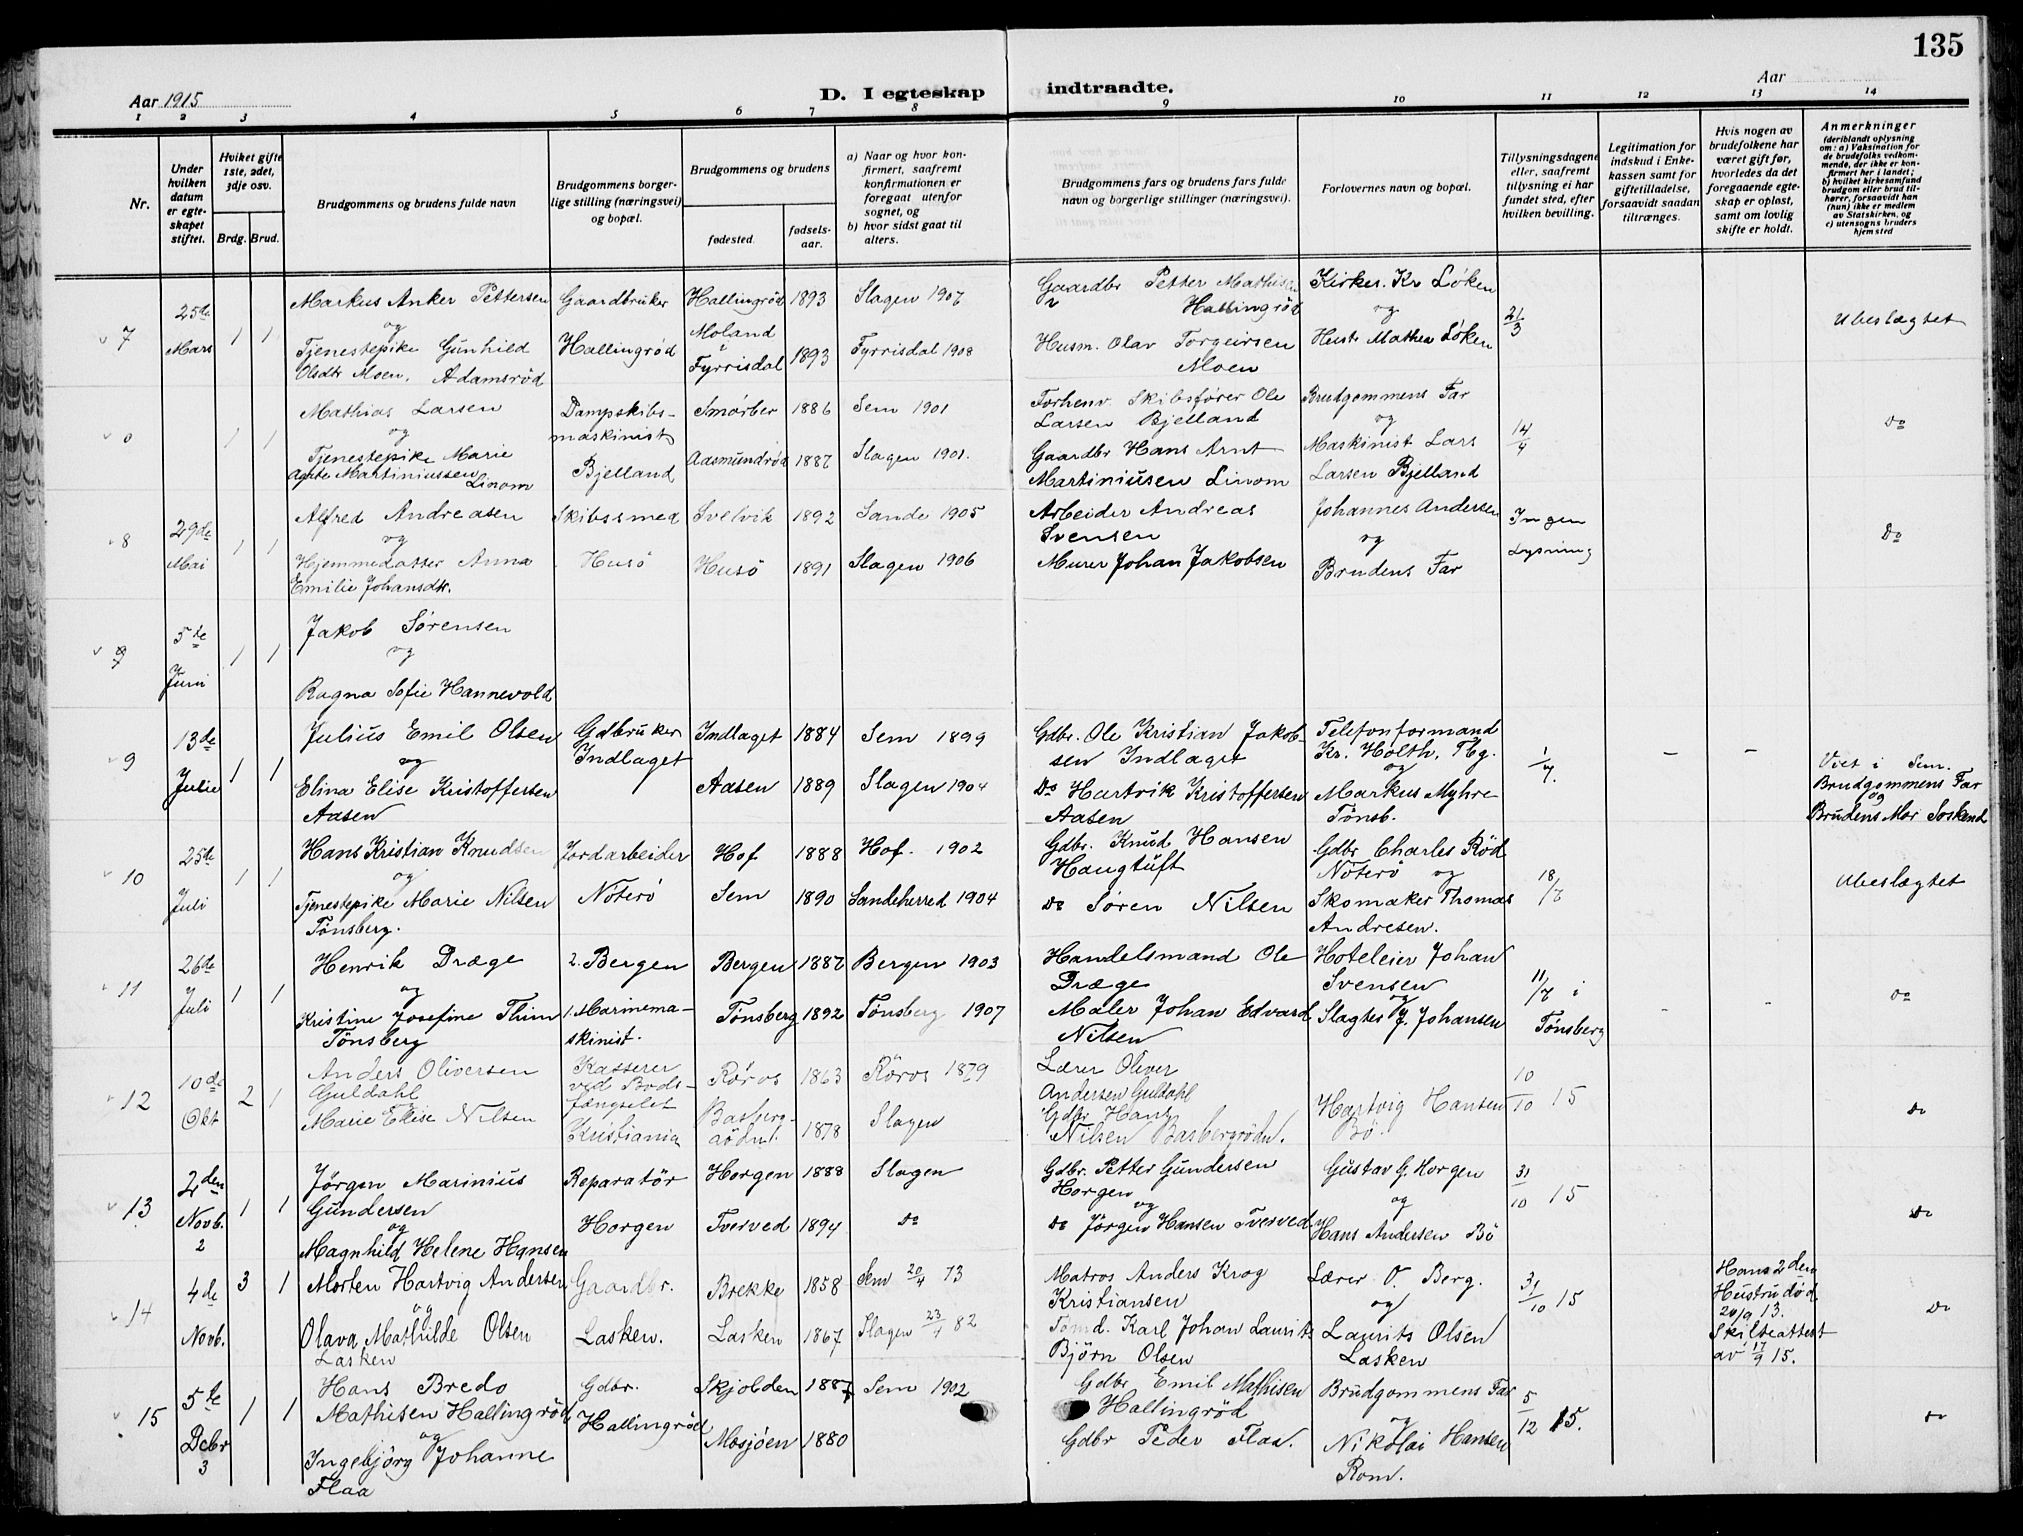 135
Aar 1915
D. I egteskap
indtraadte.
Aar
1 2 3 4 5 6 7 8 9 10 11 12 13 14
Nr.
Under hvilken datum er egteskapet stiftet.
Hviket gifte 1ste, 2det, 3dje osv.
Brdg. Brud.
Brudgommens og brudens fulde navn
Brudgommens borgerlige stilling (næringsvei) og bopæl.
Brudgommens og brudens
fødested.
fødselsaar.
a) Naar og hvor konfirmert, saafremt konfirmationen er foregaat utenfor sognet, og
b) hvor sidst gaat til alters.
Brudgommens fars og brudens fars fulde navn og borgerlige stillinger (næringsvei).
Forlovernes navn og bopæl.
Tillysningsdagene eller, saafremt tillysning ei har fundet sted, efter hvilken bevilling.
Legitimation for indskud i Enkekassen samt for giftetilladelse, forsaavidt saadan tiltrænges.
Hvis nogen av brudefolkene har været gift før, hvorledes da det foregaaende egteskap er opløst, samt om lovlig skifte er holdt.
Anmerkninger
(deriblandt oplysning om: a) Vaksination for de brudefolks vedkommende, der ikke er konfirmert her i landet;
b) hvilket kirkesamfund brudgom eller brud tilhører, forsaavidt han (hun) ikke er medlem av Statskirken, og
c) utensogns bruders hjemsted
7 25de Mars 1 1
Markus Anker Pettersen Gaardbruker Hallingrød 1893 Slagen 1907 Gaardbr Petter Mathisen Kirkes. Kr Løken
og Hallingrød og 21/3 Ubeslægtet
Tjenestepike Gunhild Hallingrød Moland i Fyrrisdal 1893 Fyrrisdal 1908 Husm. Olav Torgeirsen Hustr Mathea Løken
Olsdtr Moen. Adamsrød Moen
1 1
Mathias Larsen Dampskibs- Smørber 1886 Sem 1901 Forhenv Skibsfører Ole Brudgommens Far
og maskinist Larsen Bjelland og 14/4 Do
Tjenestepike Marie Bjelland Aasmundrød 1887 Slagen 1901. Gaardbr Hans Arnt Maskinist Lars
Agate Martiniussen Linom Martiniusen Linom Larsen Bjelland
8 29de Mai 1 1
Alfred Andreasen Skibssmed Svelvik 1892 Sande 1905 Arbeider Andreas Johannes Andersen Ingen
og Svensen og Lysning Do
Hjemmedatter Anna Husö Husö 1891 Slagen 1906 Murer Johan Jakobsen Brudens Far
Emilie Johansdtr.
9 5te Juni 1 1
Jakob Sørensen
og
Ragna Sofie Hannevold
9 13de Julie 1 1
Julius Emil Olsen Gdbruker Indlaget 1884 Sem 1899 Gdbr. Ole Kristian Jakob- Telefonformand
og Indlaget sen Indlaget Kr. Holth. Tbg. 1/7. – –
og
Elina Elise Kristoffersen Aasen 1889 Slagen 1904 Do Hartvik Kristoffersen Markus Myhre
Aasen Aasen Tönsb.
Viet i Sem.
Brudgommens Far
og
Brudens Mor Søskend
10 25te Juli 1 1
Hans Kristian Knudsen Jordarbeider Hof 1888 Hof. 1902 Gdbr. Knud Hansen Gdbr Charles Röd
og Haugtuft Nøterö og 18/7 Ubeslægtet
Tjenestepike Marie Nilsen Nøterö Sem 1890 Sandeherred 1904 Do Søren Nilsen Skomaker Thomas
Tønsberg. Andresen.
11 26de Juli 1 1
Henrik Dræge 2. Bergen Bergen 1887 Bergen 1903 Handelsmand Ole Hoteleier Johan
og Dræge Svensen 11/7 i Do
og
Kristine Josefine Thim 1. Marinema- Tønsberg 1892 Tønsberg 1907 Maler Johan Edvard Slagter J. Johansen Tønsberg
Tønsberg skinist. Nilsen
12 10de Okt 2 1
Anders Oliversen Kasserer Røros 1863 Röros 1879 Lærer Oliver
Guldahl ved Bods- Andersen Guldahl 10/10 15
og fængselet Gdbr Hans Hartvig Hansen Do
Marie Elise Nilsen Kristiania 1878 Slagen Nilsen Basbergrödn. Bö.
13 2den Novb. 2 1 1
Jørgen Marinius Reparatör Horgen 1888 Slagen Gdbr. Petter Gundersen Gustav G. Horgen 31/10 15
Gundersen Horgen og
og og Do
Magnhild Helene Hansen Horgen Tverved 1894 Do Do Jørgen Hansen Tverved Hans Andersen Bö
14 4de Novb. 3 1
Morten Hartvig Andersen Gaardbr. Brekke 1858 Sem 20/4 73 Matros Anders Krog Lærer O. Berg. 31/10 15
og Kristiansen og Do
Olava Mathilde Olsen Lasken. Lasken 1867 Slagen 82 Tömd. Karl Johan Laurits Laurits Olsen
Lasken Björn Olsen Lasken
Hans 2den
Hustru död
13.
Skifteattest
av 17/9 15.
15 5te Dcbr 3 1 1
Hans Bredo Gdbr. Skjolden 1887 Sem 1902 Gdbr Emil Mathisen Brudgommens Far
Mathisen Hallingröd Hallingröd Hallingröd og 5/12 15. Do
og
Ingebjörg Johanne Mosjöen 1880 Gdbr Peder Flaa. Nikolai Hansen
Flaa Rom.